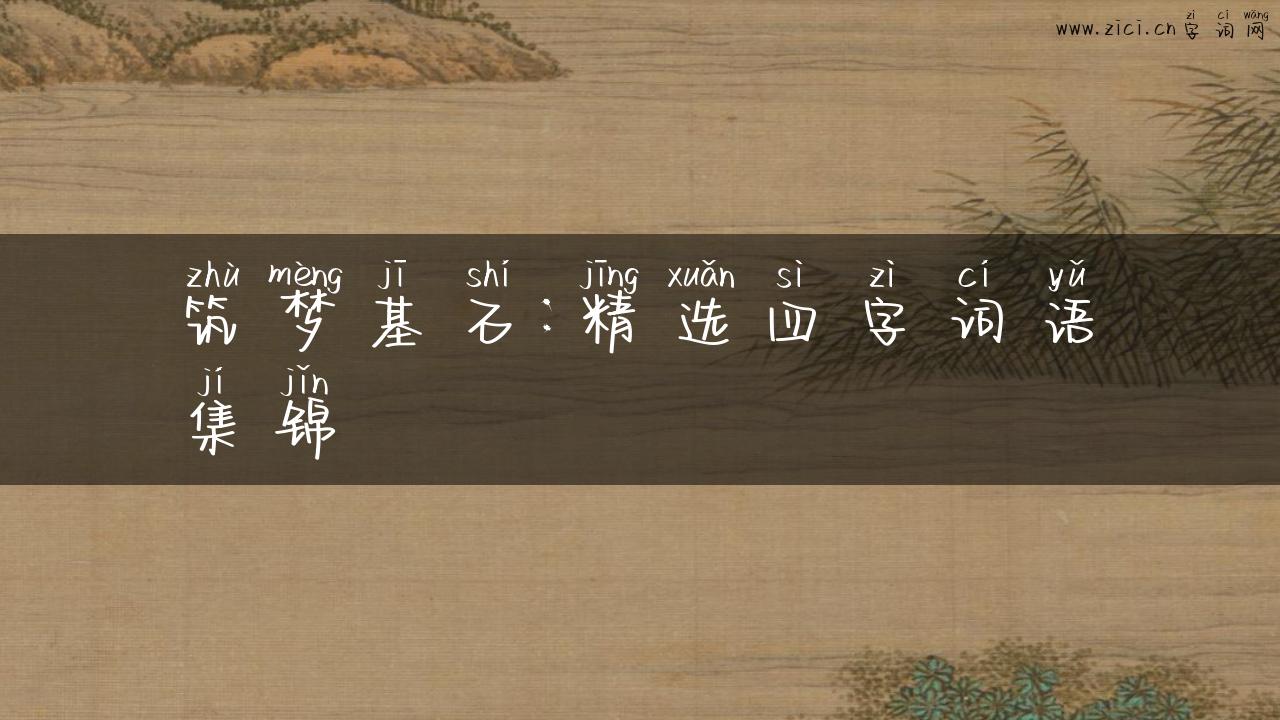 zì cí wǎng
www.zici.cn 字词网
zhù mèng jī shí jīng xuǎn sì zì cí yǔ
筑梦基石:精选四字词语
jí jǐn
集锦